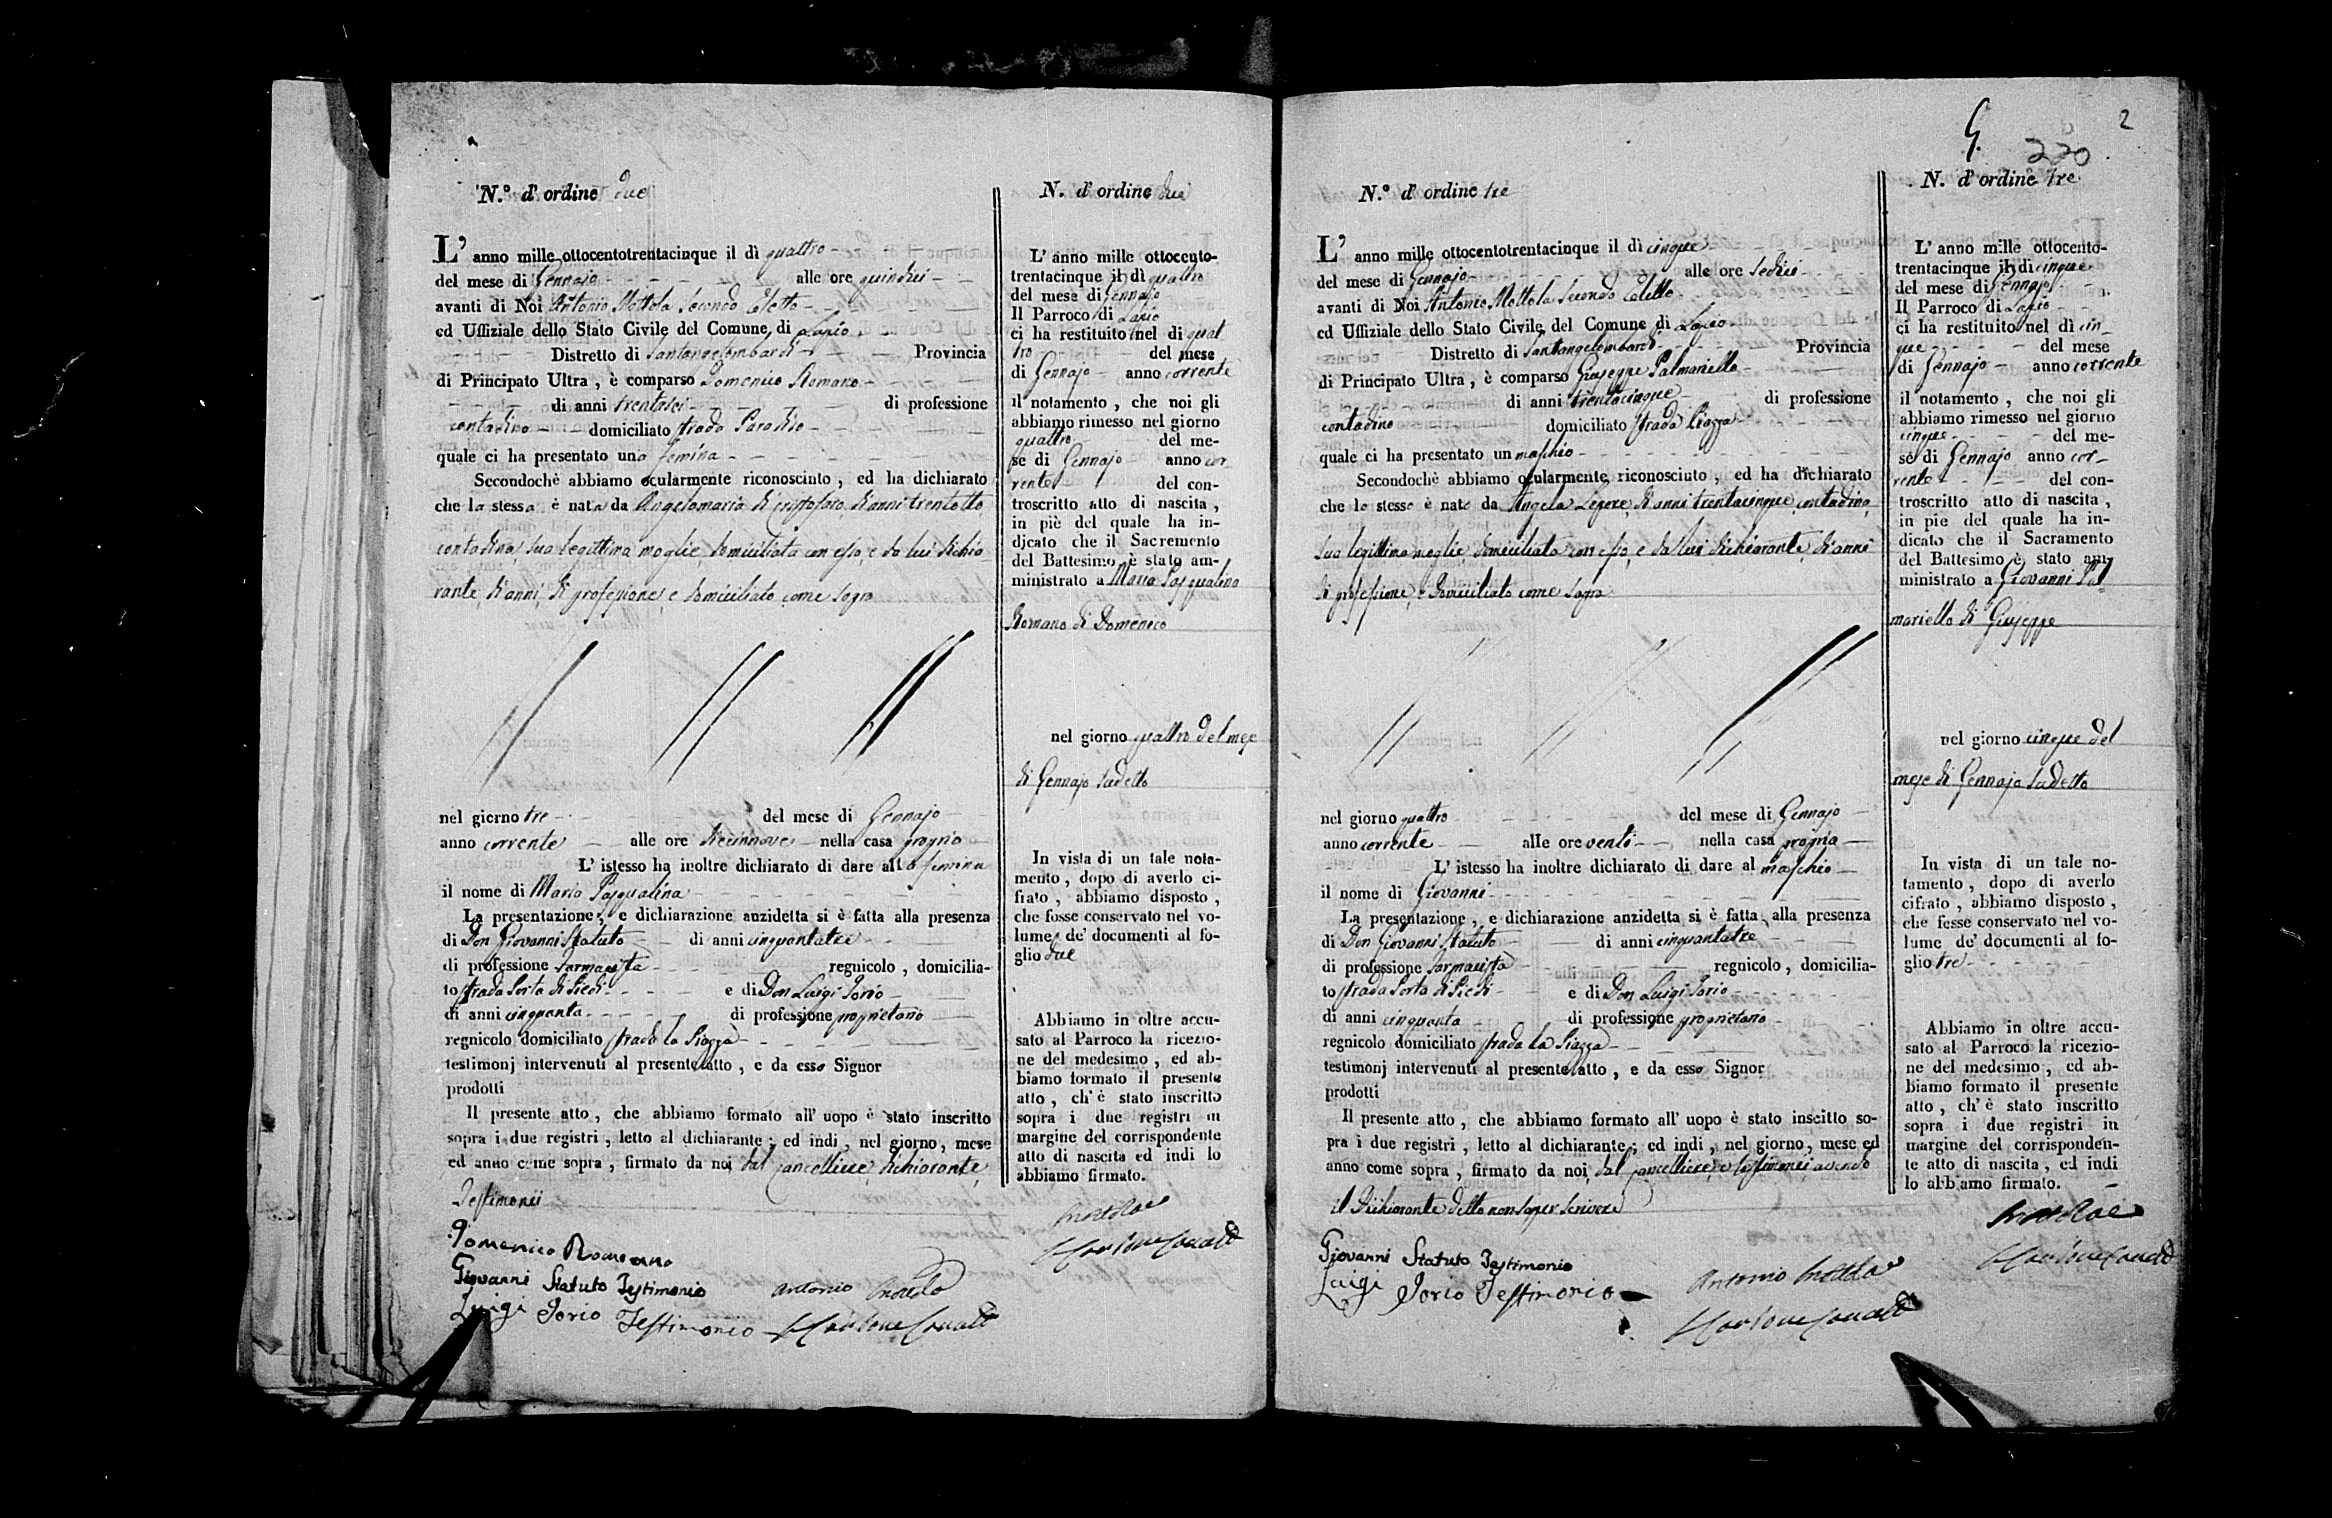 N.º d' ordine due
L' anno mille ottocentotrentacinque il dì quattro
del mese di Gennajo alle ore quindici
avanti di Noi Antonio Mottola Secondo Eletto
ed Uffiziale dello Stato Civile del Comune di Lapio
Distretto di Santangelombardi Provincia
di Principato Ultra , è comparso Domenico Romano
di anni trentasei di professione
contadino domiciliato strada Paradiso
quale ci ha presentato una femina
Secondochè abbiamo ocularmente riconosciuto , ed ha dichiarato
che la stessa è nata da Angelomaria di anni trentotto
contadina, sua legittima moglie, domiciliata con esso, e da lui dichia
rante, di anni, di professione, e domiciliato come sopra
nel giorno tre del mese di Gennajo
anno corrente alle ore diecinnove nella casa propria
L' istesso ha inoltre dichiarato di dare alla femina
il nome di Maria Pasqualina
La presentazione , e dichiarazione anzidetta si è fatta alla presenza
di Don Giovanni Statuto di anni cinquantatre
di professione farmacista regnicolo , domicilia-
to strada Porta di Piedi e di Don Luigi Iorio
di anni cinquanta di professione proprietario
regnicolo domiciliato strada la Piazza
testimonj intervenuti al presente atto , e da esso Signor
prodotti
Il presente atto , che abbiamo formato all' uopo è stato inscritto
sopra i due registri , letto al dichiarante ; ed indi , nel giorno , mese
ed anno come sopra , firmato da noi, dal cancelliere, dichiarante,
Testimonii
Domenico Romano
Giovanni Statuto Testimonio
Luigi Iorio Testimonio
Antonio Mottola
N. d' ordine due
L' anno mille ottocento-
trentacinque il dì quattro
del mese di Gennajo
Il Parroco di Lapio
ci ha restituito nel dì quat
tro del mese
di Gennajo anno corrente
il notamento , che noi gli
abbiamo rimesso nel giorno
quattro del me-
se di Gennajo anno cor
rente del con-
troscritto atto di nascita ,
in piè del quale ha in-
dicato che il Sacremento
del Battesimo è stato am-
ministrato a Maria Pasqualina
Romano di Domenico
nel giorno quattro del mese
di Gennajo sudetto
In vista di un tale nota-
mento , dopo di averlo ci-
frato , abbiamo disposto ,
che fosse conservato nel vo-
lume de' documenti al fo-
glio due
Abbiamo in oltre accu-
sato al Parroco la ricezio-
ne del medesimo , ed ab-
biamo formato il presente
atto , ch' è stato inscritto
sopra i due registri in
margine del corrispondente
atto di nascita ed indi lo
abbiamo firmato.
Mottola
2
220
N.º d' ordine tre
L' anno mille ottocentotrentacinque il dì cinque
del mese di Gennajo alle ore sedici
avanti di Noi Antonio Mottola Secondo Eletto
ed Uffiziale dello Stato Civile del Comune di Lapio
Distretto di Santangelombardi Provincia
di Principato Ultra , è comparso Giuseppe Palmariello
di anni trentacinque di professione
contadino domiciliato strada Piazza
quale ci ha presentato un maschio
Secondochè abbiamo ocularmente riconosciuto , ed ha dichiarato
che lo stesso è nato da Angela Lepore, di anni trentacinque contadina
sua legittima moglie, domiciliata con esso, e da lui dichiarante, di anni
di professione, e domiciliato come sopra
nel giorno quattro del mese di Gennajo
anno corrente alle ore venti nella casa propria
L' istesso ha inoltre dichiarato di dare al maschio
il nome di Giovanni
La presentazione , e dichiarazione anzidetta si è fatta alla presenza
di Don Giovanni Statuto di anni cinquantatre
di professione farmacista regnicolo , domicilia-
to strada Porta di Piedi e di Don Luigi Iorio
di anni cinquanta di professione proprietario
regnicolo domiciliato strada la Piazza
testimonj intervenuti al presente atto , e da esso Signor
prodotti
Il presente atto , che abbiamo formato all' uopo è stato inscitto so-
pra i due registri , letto al dichiarante ; ed indi , nel giorno , mese ed
anno come sopra , firmato da noi, dal cancelliere, e testimonii, avendo
il dichiarante detto non saper scrivere
Giovanni Statuto Testimonio
Luigi Iorio Testimonio
Antonio Mottola
N. d' ordine tre
L' anno mille ottocento-
trentacinque il dì cinque
del mese di Gennajo
Il Parroco di Lapio
ci ha restituito nel dì cin
que del mese
di Gennajo anno corrente
il notamento , che noi gli
abbiamo rimesso nel giorno
cinque del me-
se di Gennajo anno cor
rente del con-
troscritto atto di nascita ,
in piè del quale ha in-
dicato che il Sacramento
del Battesimo è stato am-
ministrato a Giovanni Pal
mariello di Giuseppe
nel giorno cinque del
mese di Gennajo sudetto
In vista di un tale no-
tamento , dopo di averlo
cifrato , abbiamo disposto ,
che fosse conservato nel vo-
lume de' documenti al fo-
glio tre
Abbiamo in oltre accu-
sato al Parroco la ricezio-
ne del medesimo , ed ab-
biamo formato il presente
atto , ch' è stato inscritto
sopra i due registri in
margine del corrisponden-
te atto di nascita , ed indi
lo abbiamo firmato.
Mottola